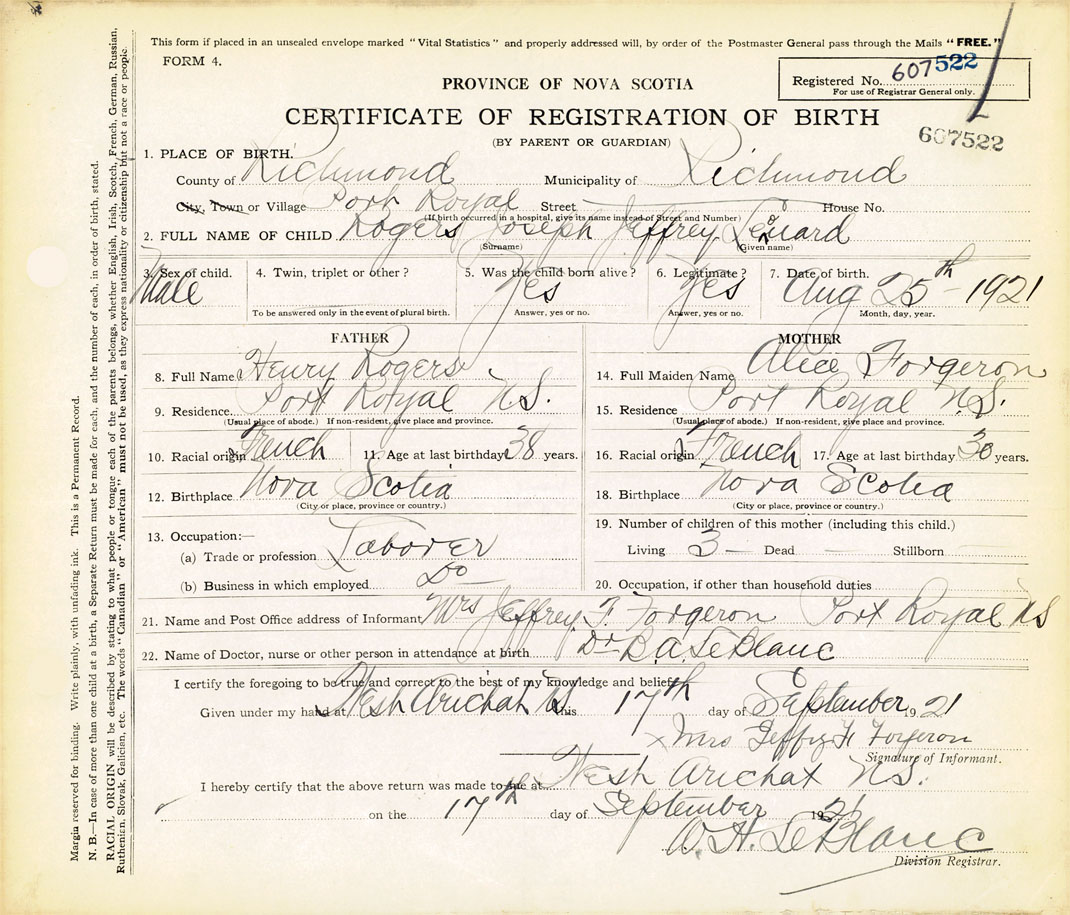 This form if placed in an unsealed envelope marked "Vital Statistics" and properly addressed will, by order of the Postmaster General pass through the Mails "FREE."
FORM 4.
Registered No. 607522
For use of Registrar General only.
607522
PROVINCE OF NOVA SCOTIA
CERTIFICATE OF REGISTRATION OF BIRTH
(BY PARENT OR GUARDIAN)
1. PLACE OF BIRTH.
County of Richmond Municipality of Richmond
City, Town or Village Port Royal Street House No.
(If birth occurred in a hospital, give its name instead of Street and Number)
2. FULL NAME OF CHILD Rogers Joseph Jeffrey Lenard
(Surname) (Given name)
3. Sex of child. 4. Twin, triplet or other? 5. Was the child born alive? 6. Legitimate? 7. Date of birth.
Male Yes Yes Aug 25th - 1921
To be answered only in the event of plural birth. Answer, yes or no. Answer, yes or no. Month, day, year.
FATHER
8. Full Name Henry Rogers
9. Residence Port Royal N.S.
(Usual place of abode.) If non-resident, give place and province.
10. Racial origin French 11. Age at last birthday 38 years.
12. Birthplace Nova Scotia
(City or place, province or country.)
13. Occupation:—
(a) Trade or profession Laborer
(b) Business in which employed Do
MOTHER
14. Full Maiden Name Alice Forgeron
15. Residence Port Royal N.S.
(Usual place of abode.) If non-resident, give place and province.
16. Racial origin French 17. Age at last birthday 30 years.
18. Birthplace Nova Scotia
(City or place, province or country.)
19. Number of children of this mother (including this child.)
Living 3 — Dead — Stillborn
20. Occupation, if other than household duties
21. Name and Post Office address of Informant Mrs Jeffrey F. Forgeron Port Royal NS
22. Name of Doctor, nurse or other person in attendance at birth Dr B.A. LeBlanc
I certify the foregoing to be true and correct to the best of my knowledge and belief.
Given under my hand at West Arichat NS this 17th day of September 1921
x Mrs Jeffry H Forgeron
Signature of Informant.
I hereby certify that the above return was made to me at West Arichat N.S.
on the 17th day of September 1921
W. H. LeBlanc
Division Registrar.
Margin reserved for binding. Write plainly, with unfading ink. This is a Permanent Record.
N. B.—In case of more than one child at a birth, a Separate Return must be made for each, and the number of each, in order of birth, stated.
RACIAL ORIGIN will be described by stating to what people or tongue each of the parents belongs, whether English, Irish, Scotch, French, German, Russian,
Ruthenian, Slovak, Galician, etc. The words "Canadian" or "American" must not be used, as they express nationality or citizenship but not a race or people.